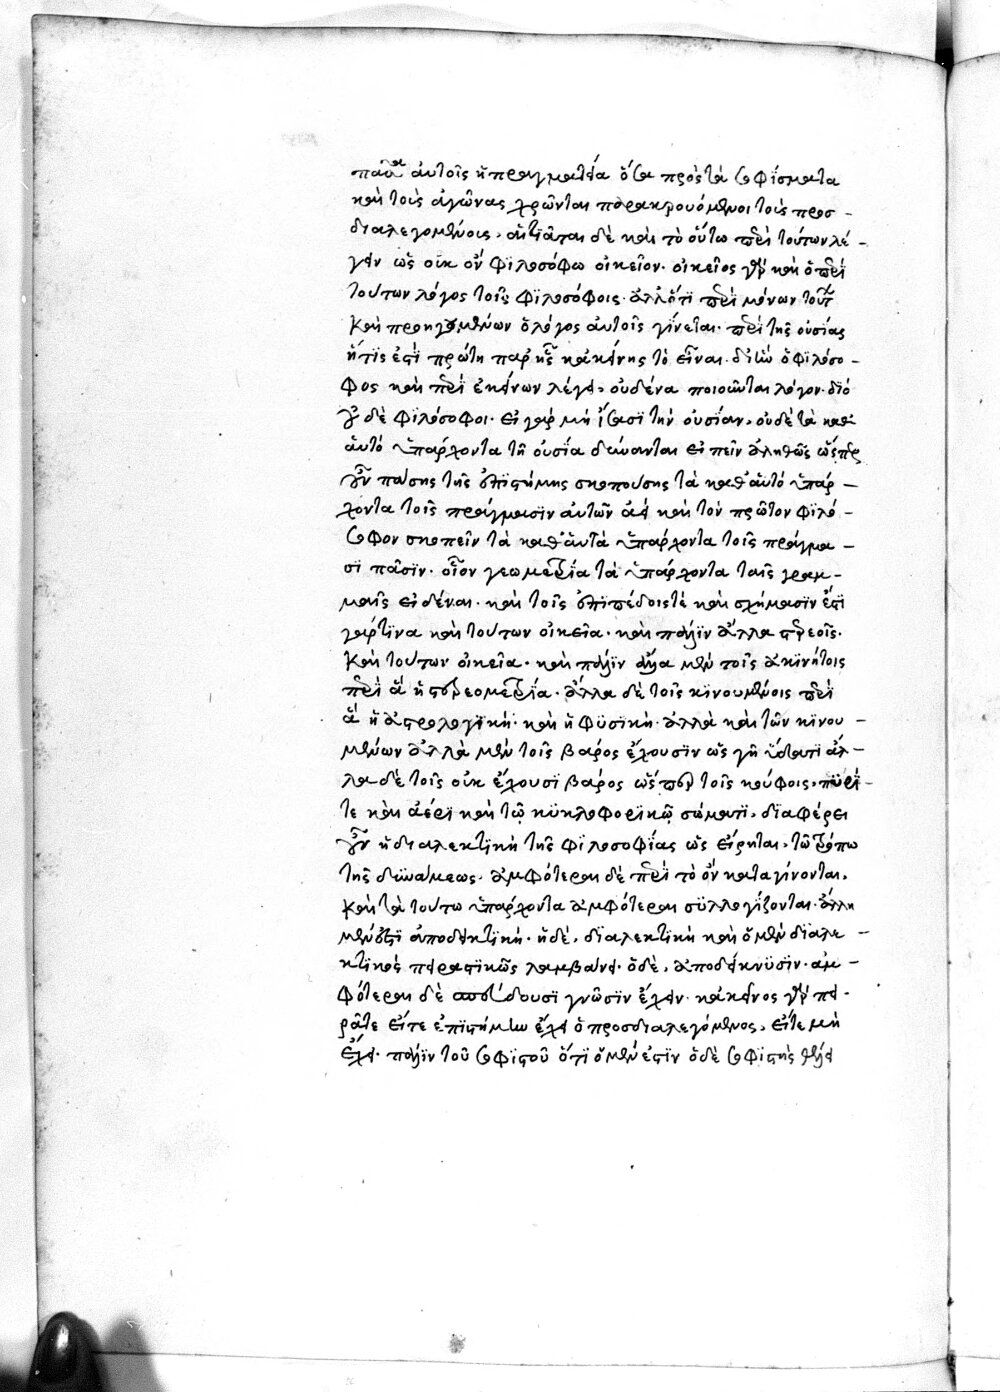 πᾶσα αὐτοῖς ἡ πραγματεία ὅσα πρὸς τὰ σοφίσματα
καὶ τοὺς ἀγῶνας χρῶνται παρακρουόμενοι τοὺς προσ-
διαλεγομένους. αἰτιᾶται δὲ καὶ τὸ οὕτω περὶ τούτων λέ-
γειν ὡς οὐκ ὂν φιλοσόφω οἰκεῖον. οἰκεῖος γὰρ καὶ ὁ περὶ
τούτων λόγος τοῖς φιλοσόφοις. ἀλλ' ὅτι περὶ μόνων τούτων
καὶ προηγουμένων ὁ λόγος αὐτοῖς γίνεται. περὶ τῆς οὐσίας
ἥτις ἐστὶ πρώτη παρ' ἧς κἀκείνης τὸ εἶναι. δι' ἣν ὁ φιλόσο-
φος καὶ περὶ ἐκείνων λέγει, οὐδένα ποιοῦνται λόγον. διὸ
οὐδὲ φιλόσοφοι. εἰ γὰρ μὴ ἴσασι τὴν οὐσίαν, οὐδὲ τὰ καθ'
αὐτὸ ὑπάρχοντα τῆ οὐσία δύνανται εἰπεῖν ἀληθῶς ὥσπερ
οὖν πάσης τῆς ἐπιστήμης σκοπούσης τὰ καθ' αὐτὸ ὑπάρ-
χοντα τοῖς πράγμασιν αὐτῶν δεῖ καὶ τὸν πρῶτον φιλό-
σοφον σκοπεῖν τὰ καθ' αὐτὰ ὑπάρχοντα τοῖς πράγμα-
σι πᾶσιν. οἷον γεωμετρία τὰ ὑπάρχοντα ταῖς γραμ-
μαῖς εἰδέναι. καὶ τοῖς ἐπιπέδοις τὲ καὶ σχήμασιν ἔστι
γάρ τινα καὶ τούτων οἰκεῖα. καὶ πάλιν ἄλλα στερεοῖς.
καὶ τούτων οἰκεῖα. καὶ πάλιν ἄλλα μὲν τοῖς ἀκινήτοις
περὶ ἃ ἡ στερεομετρία. ἄλλα δὲ τοῖς κινουμένοις περὶ
ἃ ἡ ἀστρολογικὴ. καὶ ἡ φυσικὴ. ἀλλὰ καὶ τῶν κινου-
μένων ἀλλὰ μὲν τοῖς βάρος ἔχουσιν ὡς γῆ ὕδατι ἄλ-
λα δὲ τοῖς οὐκ ἔχουσι βάρος ὥσπερ τοῖς κούφοις, πυρί-
τε καὶ ἀέρι καὶ τῷ κυκλοφορικῷ σώματι, διαφέρει
οὖν ἡ διαλεκτικὴ τῆς φιλοσοφίας ὡς εἴρηται, τῶ τρόπω
τῆς δυνάμεως. ἀμφότεραι δὲ περὶ τὸ ὂν καταγίνονται,
καὶ τὰ τούτω ὑπάρχοντα ἀμφότεραι συλλογίζονται. ἀλλ' ἡ
μὲν ἐστὶ ἀποδεικτικὴ. ἡ δὲ, διαλεκτικὴ καὶ ὁ μὲν διαλε-
κτικὸς πειραστικῶς λαμβάνει. ὁ δὲ, ἀποδείκνυσιν. ἀμ-
φότεραι δὲ σπεύδουσι γνῶσιν ἔχειν. κἀκεῖνος γὰρ πει-
ρᾶτε εἴτε ἐπιστήμην ἔχει ὁ προσδιαλεγόμενος, εἴτε μὴ
ἔχει. πάλιν τοῦ σοφιστοῦ ὅτι ὁ μὲν ἐστὶν ὁ δὲ σοφιστὴς θέλει